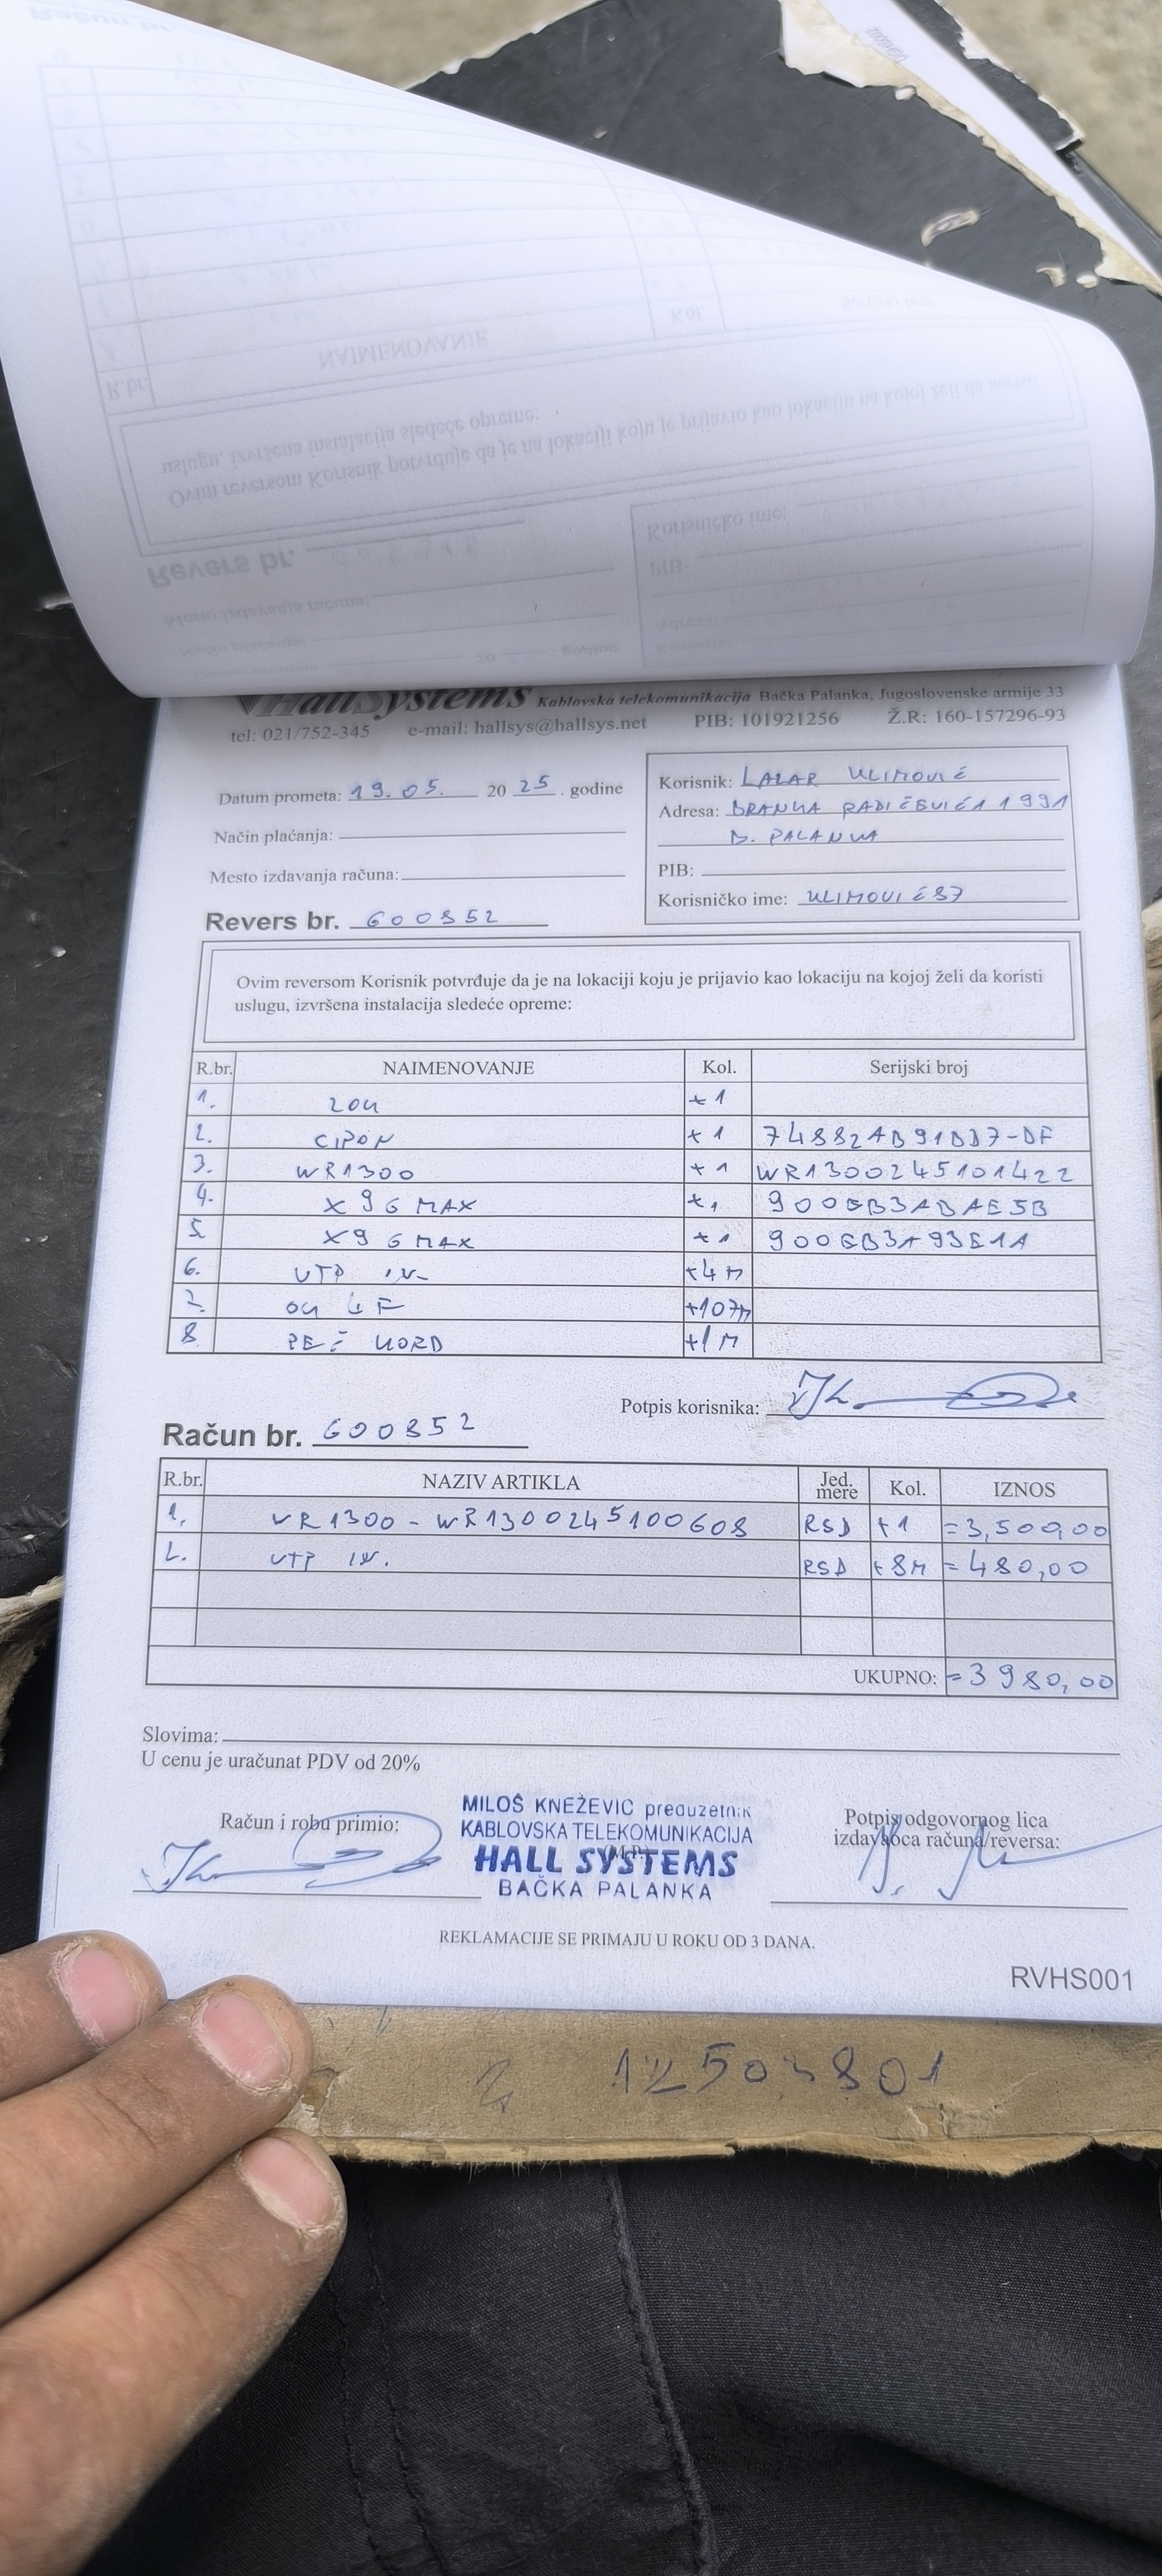 HallSystems Kablovska telekomunikacija Bačka Palanka, Jugoslovenske armije 33
tel: 021/752-345 e-mail: hallsys@hallsys.net PIB: 101921256 Ž.R: 160-157296-93
Datum prometa: 19.05. 20 25 . godine
Način plaćanja:
Mesto izdavanja računa:
Revers br. 600852
Korisnik: LAZAR KLIMOVIĆ
Adresa: BRANKA RADIČEVIĆA 199A
B. PALANKA
PIB:
Korisničko ime: KLIMOVIĆ87
Ovim reversom Korisnik potvrđuje da je na lokaciji koju je prijavio kao lokaciju na kojoj želi da koristi
uslugu, izvršena instalacija sledeće opreme:
R.br. NAIMENOVANJE Kol. Serijski broj
1. ZOK +1
2. CIPON +1 74882AB91BD7-DF
3. WR1300 +1 WR1300245101422
4. X96 MAX +1 900EB3ABAE5B
5. X96 MAX +1 900EB3A93E1A
6. UTP +4M
7. OK 4F +107M
8. PEČ KORD +1M
Potpis korisnika:
Račun br. 600852
R.br. NAZIV ARTIKLA Jed. mere Kol. IZNOS
1. WR1300 - WR1300245100608 RSD +1 =3,500,00
2. UTP RSD +8M =480,00
UKUPNO: =3980,00
Slovima:
U cenu je uračunat PDV od 20%
Račun i robu primio:
MILOŠ KNEŽEVIĆ preduzetnik
KABLOVSKA TELEKOMUNIKACIJA
HALL SYSTEMS
BAČKA PALANKA
(M.P.)
Potpis odgovornog lica
izdavaoca računa/reversa:
REKLAMACIJE SE PRIMAJU U ROKU OD 3 DANA.
RVHS001